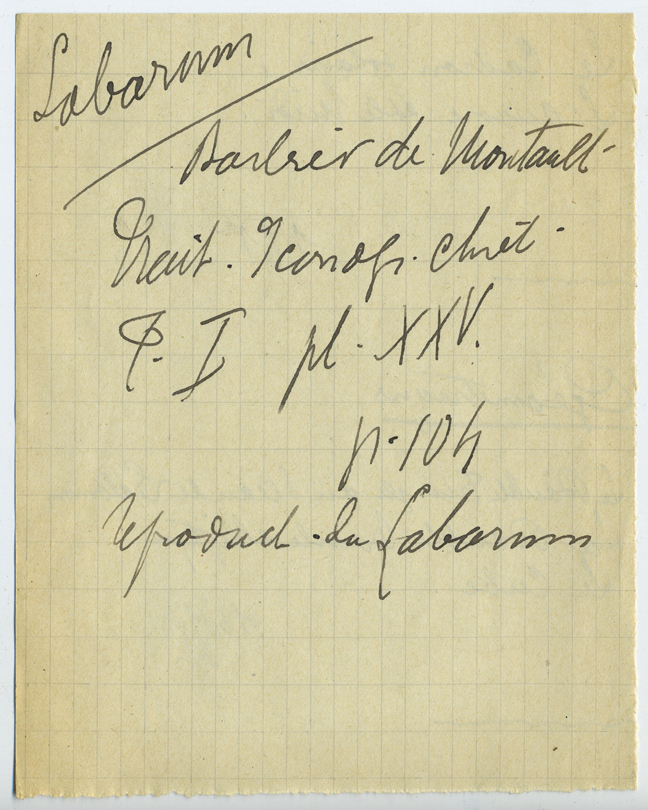 Labarum
Barbier de Montault
Trait. Iconogr. chrét.
T. I pl. XXV.
p. 104
reproduct. du Labarum